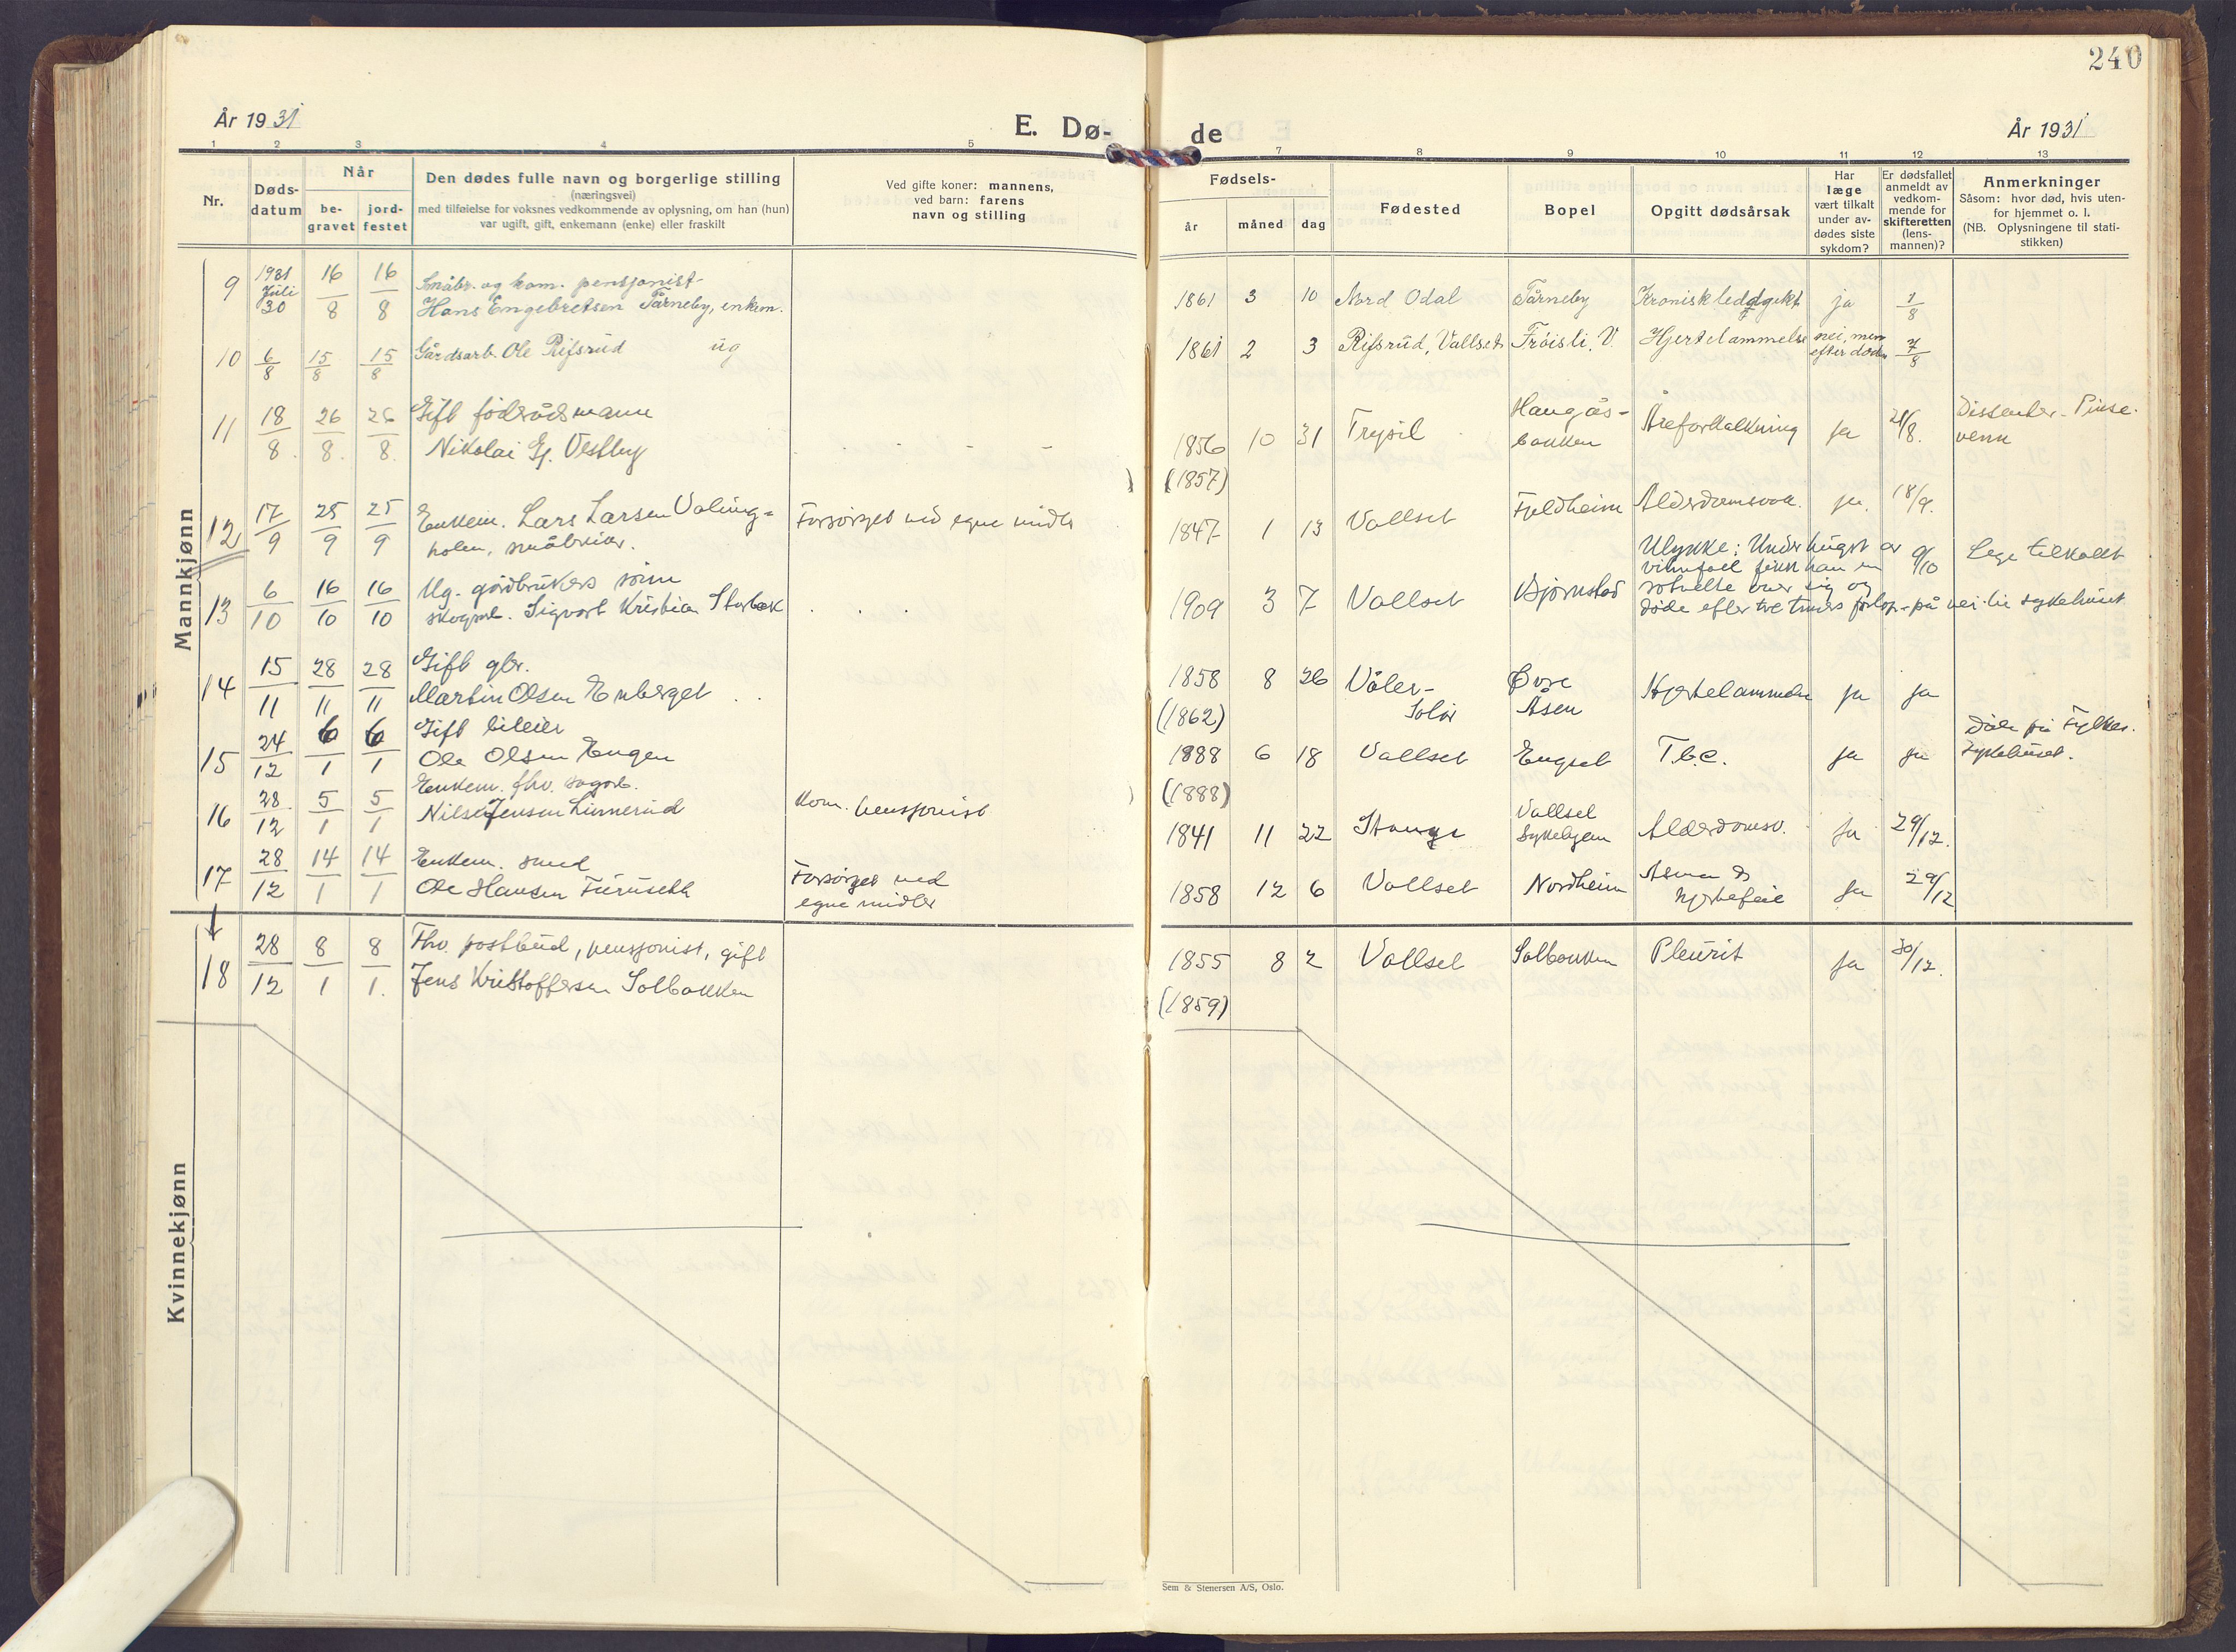 240
År 1931
E. Dø-
de
År 1931
1 2 3 4 5 7 8 9 10 11 12 13
Nr.
Døds-
datum
Når
be-
gravet
jord-
festet
Den dødes fulle navn og borgerlige stilling
(næringsvei)
med tilføielse for voksnes vedkommende av oplysning, om han (hun)
var ugift, gift, enkemann (enke) eller fraskilt
Ved gifte koner: mannens,
ved barn: farens
navn og stilling
Fødsels-
år måned dag
Fødested
Bopel
Opgitt dødsårsak
Har
læge
vært tilkalt
under av-
dødes siste
sykdom?
Er dødsfallet
anmeldt av
vedkom-
mende for
skifteretten
(lens-
mannen)?
Anmerkninger
Såsom: hvor død, hvis uten-
for hjemmet o. l.
(NB. Oplysningene til stati-
stikken)
Mannkjønn
9 1931 Juli 30 16/8 16/8 Småbr. og kom. pensjonist
Hans Engebretsen Tårneby, enkem.
1861 3 10 Nord Odal Tårneby Kronisk leddgikt ja 1/8
10 6/8 15/8 15/8 Gårdsarb. Ole Rifsrud ug
1861 2 3 Rifsrud, Vallset Frøisli. V. Hjertelammelse nei, men
efter døden 7/8
11 18/8 26/8 26/8 Gift føderådsmann
Nikolai Ej. Vestby
1856 10 31 Trysil Haugås-
bakken Åreforkalkning ja 21/8. Dissenter - Pinse-
venn
(1857)
12 17/9 25/9 25/9 Enkem. Lars Larsen Valing-
holen, småbruker.
Forsørget ved egne midler
1847 1 13 Vallset Fjeldheim Alderdomssvak. ja. 18/9.
13 6/10 16/10 16/10 Ug. gårdbrukers sønn
skogsarb. Sigvart Kristian Storbæk
1909 3 7 Vallset Bjørnstad Ulykke: Under hugst av
vindfall fikk han en
rotvelte over sig og
døde efter tre timers forløp - på vei til sykehuset
9/10 Lege tilkallt
14 15/11 28/11 28/11 Gift gbr.
Martin Olsen Enberget
1858 8 26 Våler-
Solør Øvre
Åsen Hjertelammelse ja ja
(1862)
15 24/12 6/1 6/1 Gift bileier
Ole Olsen Engen
1888 6 18 Vallset Engset T.b.c. ja ja Døde på Fylkes-
sykehuset.
(1888)
16 28/12 5/1 5/1 Enkem. fhv. sagarb.
Nils Jensen Linnerud
Kom. pensjonist
1841 11 22 Stange Vallset
Sykehjem Alderdomsv. ja 29/12.
17 28/12 14/1 14/1 Enkem. smed
Ole Hansen Furuseth
Forsørget ved
egne midler
1858 12 6 Vallset Nordheim Asma &
hjertefeil ja 29/12
18 28/12 8/1 8/1. Fhv. postbud, pensjonist, gift
Jens Kristoffersen Solbakken
1855 8 2 Vallset Solbakken Pleurit ja 30/12.
(1859)
Kvinnekjønn
Sem & Stenersen A/S, Oslo.